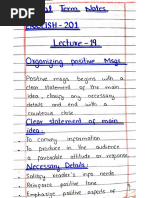 Final Term Notes
ENGLISH-201
Lecture-19
Organizing positive Msgs
Positive msgs begins with a
clear statement of the main
idea, clarify any necessary
details and end with a
courteous close
Clear statement of main
idea:
To convey information
To produce in the audience
a favorable attitude or response
Necessary Details:
Satisfy reader's info needs
Reinforce positive tone
Emphasize positive aspects of